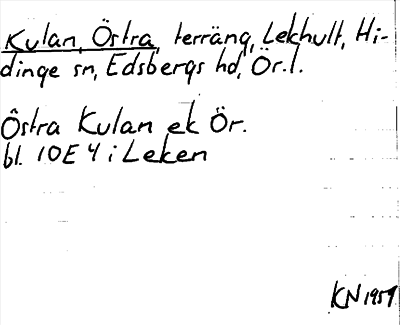 Kulan, Östra, terräng, Lekhult, Hi-
dinge sn, Edsbergs hd, Ör.l.
Östra Kulan ek Ör.
bl. 10E 4 i Leken
KN 1951